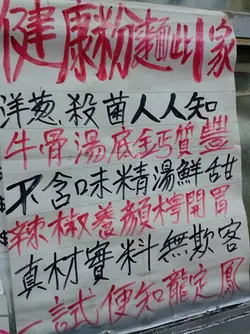 健康粉麵此家
洋葱殺菌人人知
牛骨湯底鈣質豐
不含味精湯鮮甜
辣椒養顏檸開胃
真材實料無欺客
一試便知龍定鳳